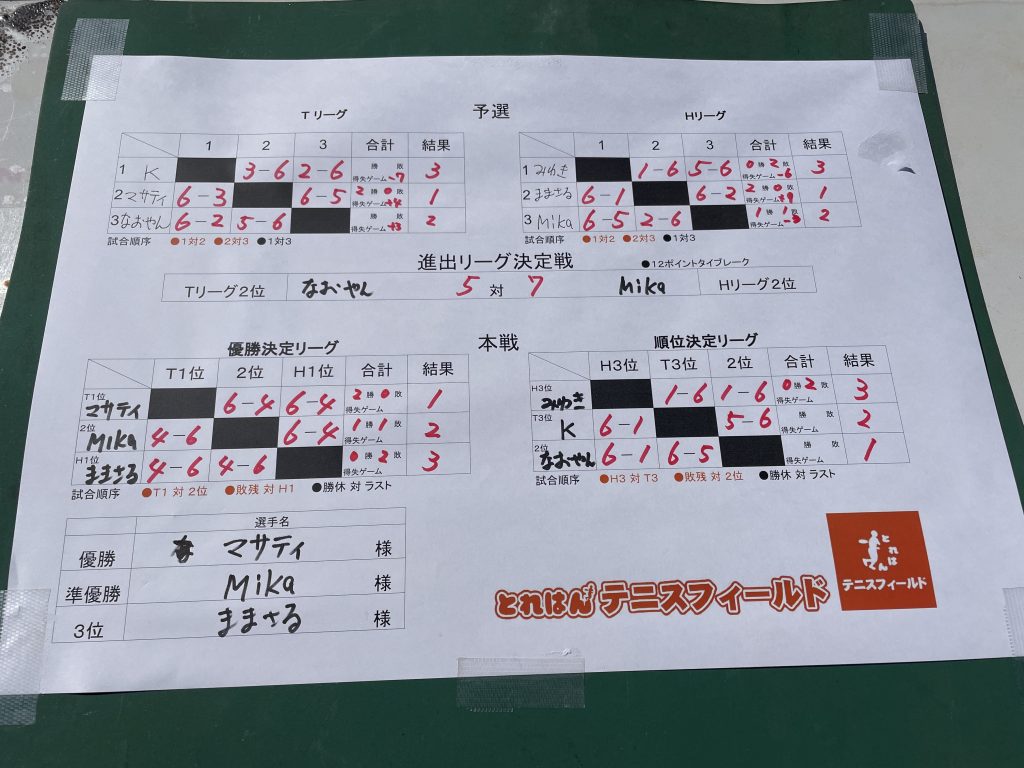 予選
Tリーグ
1 2 3 合計 結果
1 K 3-6 2-6 勝 敗 得失ゲーム -7 3
2 マサティ 6-3 6-5 2勝0敗 得失ゲーム +4 1
3 なおやん 6-2 5-6 勝 敗 得失ゲーム +3 2
試合順序 ●1対2 ●2対3 ●1対3
Hリーグ
1 2 3 合計 結果
1 みゆき 1-6 5-6 0勝2敗 得失ゲーム -6 3
2 ままさる 6-1 6-2 2勝0敗 得失ゲーム +9 1
3 Mika 6-5 2-6 1勝1敗 得失ゲーム -3 2
試合順序 ●1対2 ●2対3 ●1対3
進出リーグ決定戦 ●12ポイントタイブレーク
Tリーグ2位 なおやん 5 対 7 Mika Hリーグ2位
本戦
優勝決定リーグ
T1位 2位 H1位 合計 結果
T1位 マサティ 6-4 6-4 2勝0敗 得失ゲーム 1
2位 Mika 4-6 6-4 1勝1敗 得失ゲーム 2
H1位 ままさる 4-6 4-6 0勝2敗 得失ゲーム 3
試合順序 ●T1 対 2位 ●敗残 対 H1 ●勝休 対 ラスト
順位決定リーグ
H3位 T3位 2位 合計 結果
H3位 みゆき 1-6 1-6 0勝2敗 得失ゲーム 3
T3位 K 6-1 5-6 勝 敗 得失ゲーム 2
2位 なおやん 6-1 6-5 勝 敗 得失ゲーム 1
試合順序 ●H3 対 T3 ●敗残 対 2位 ●勝休 対 ラスト
選手名
優勝 マサティ 様
準優勝 Mika 様
3位 ままさる 様
とれはん テニスフィールド
とれはん
テニスフィールド